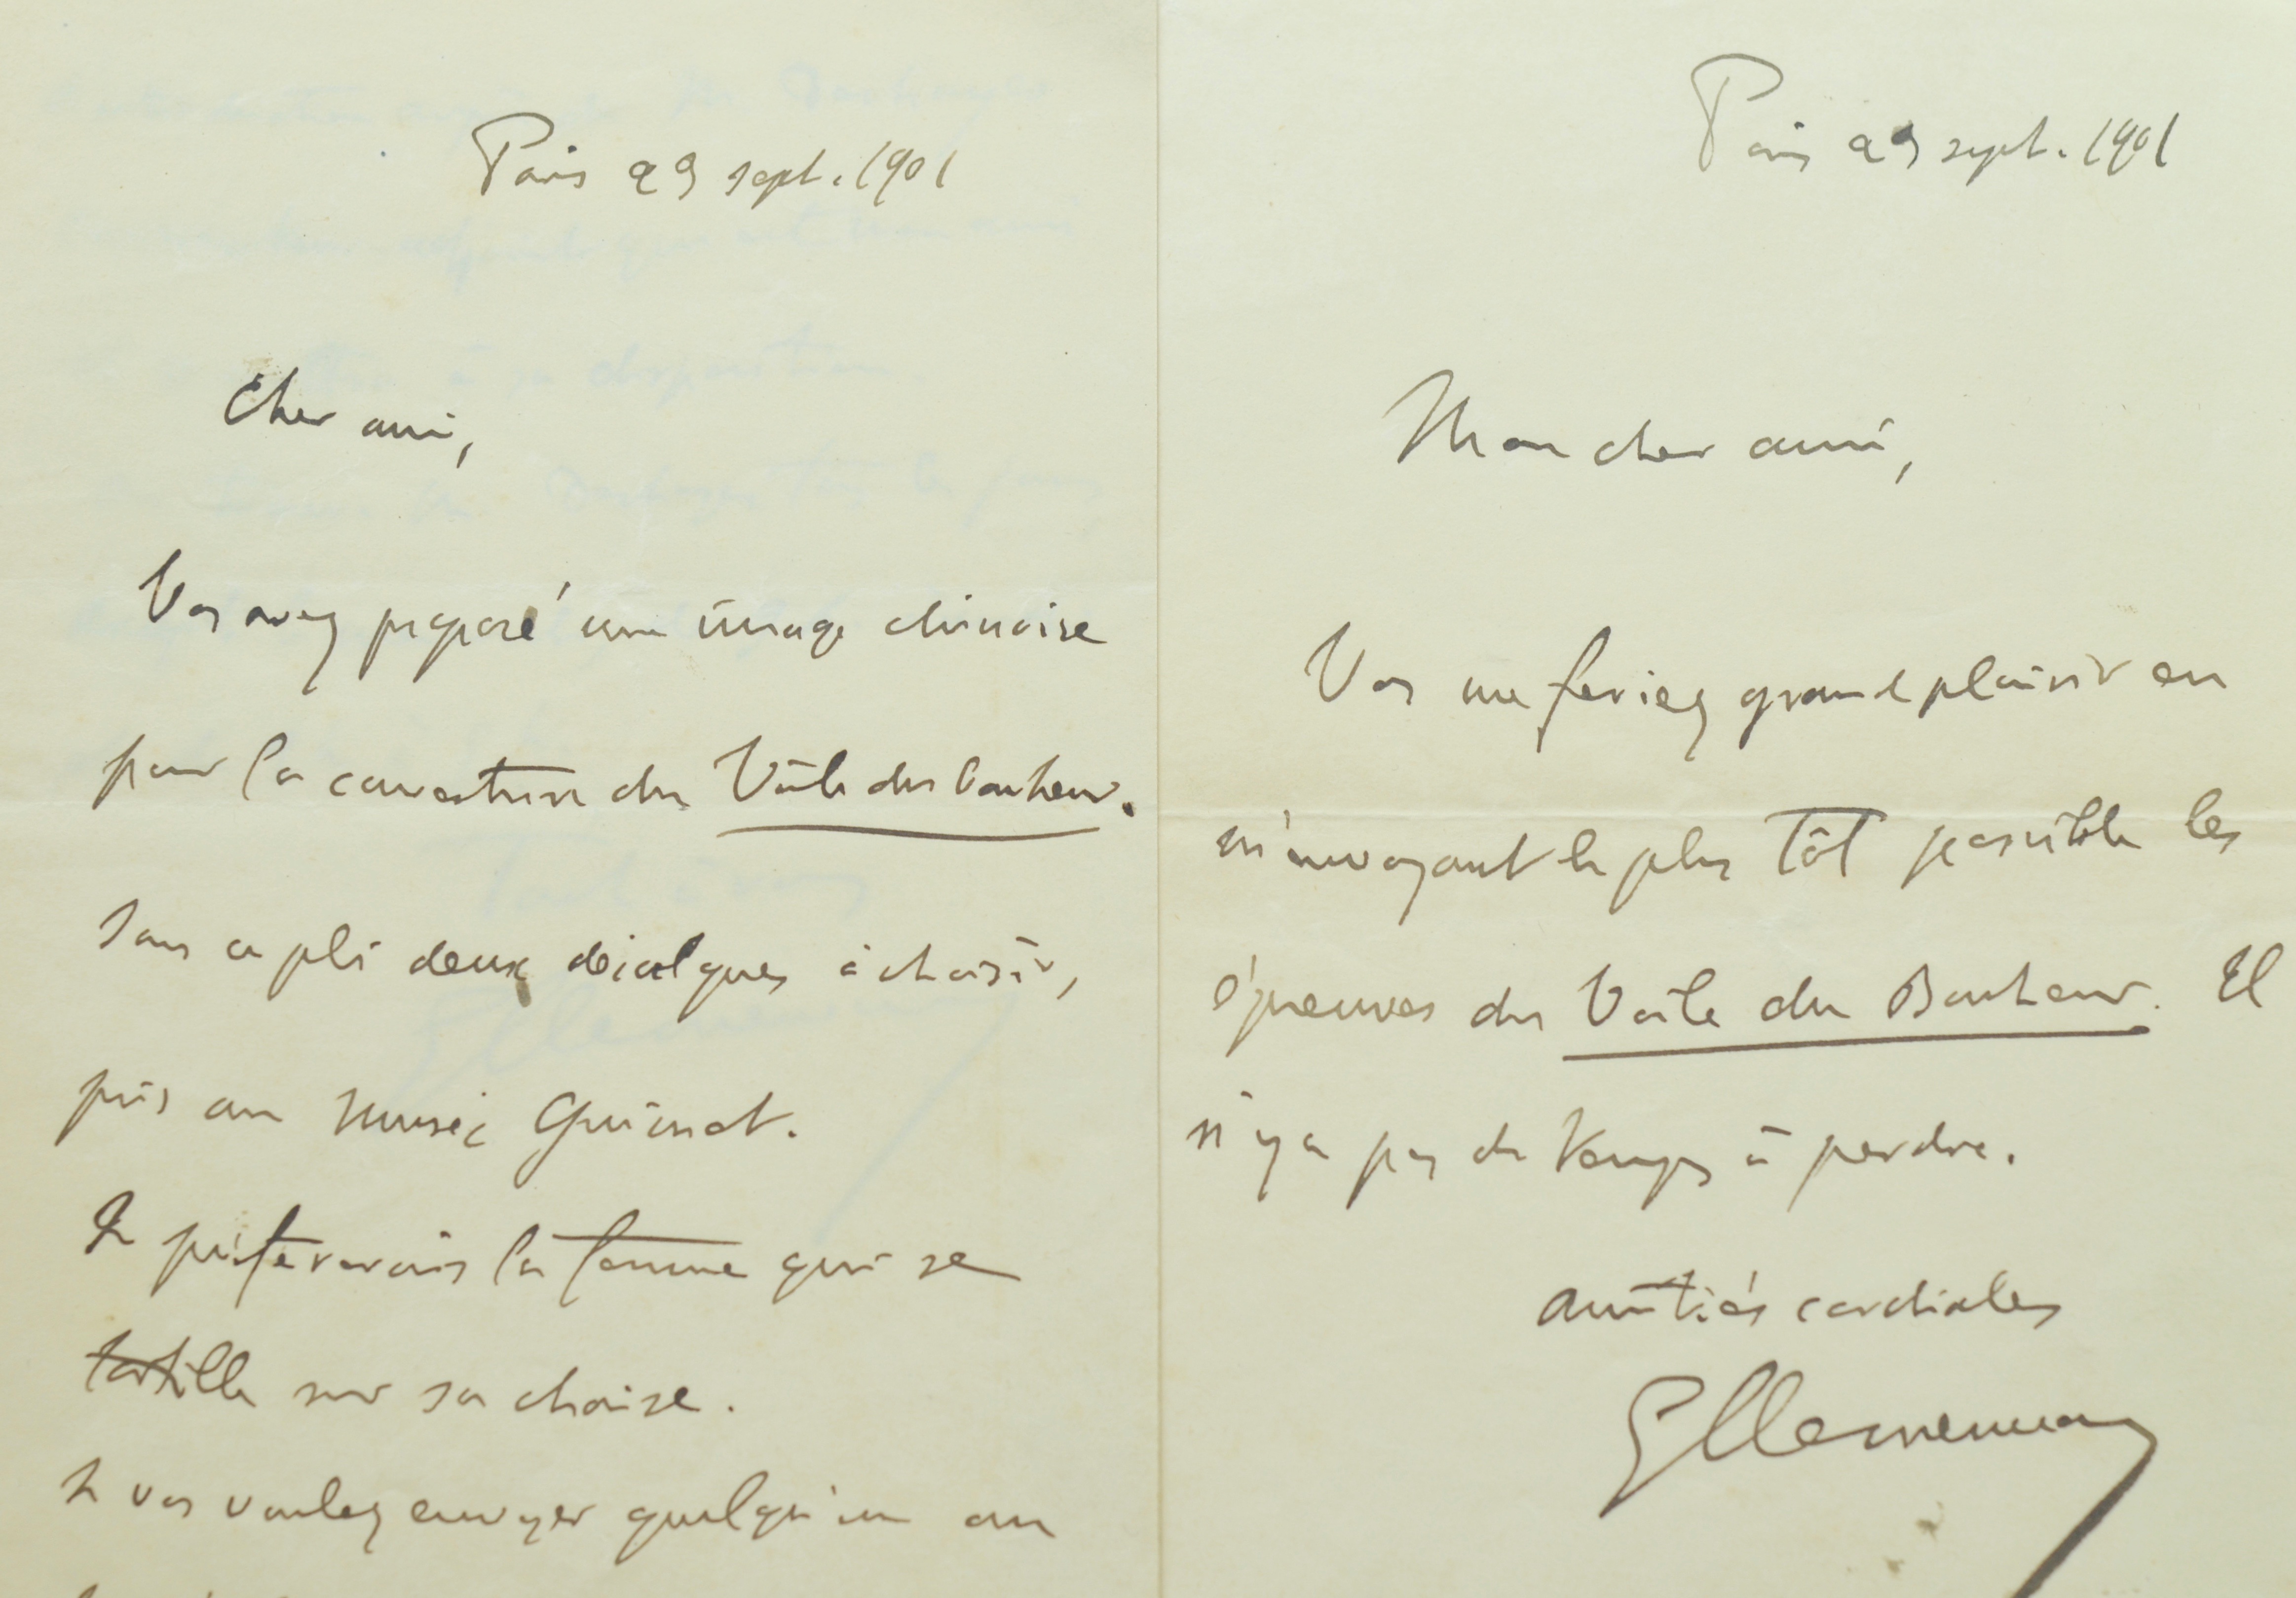 Paris 29 sept. 1901
Cher ami,
Vous avez proposé une image chinoise
pour la couverture du Voile du bonheur.
Sous ce pli deux décalques à choisir,
pris au Musée Guimet.
Je préférerais la femme qui se
tortille sur sa chaise.
Si vous voulez envoyer quelqu'un au
Paris 29 sept. 1901
Mon cher ami,
Vous me feriez grand plaisir en
m'envoyant le plus tôt possible les
épreuves du Voile du Bonheur. Il
n'y a pas de temps à perdre.
amitiés cordiales
GClemenceau